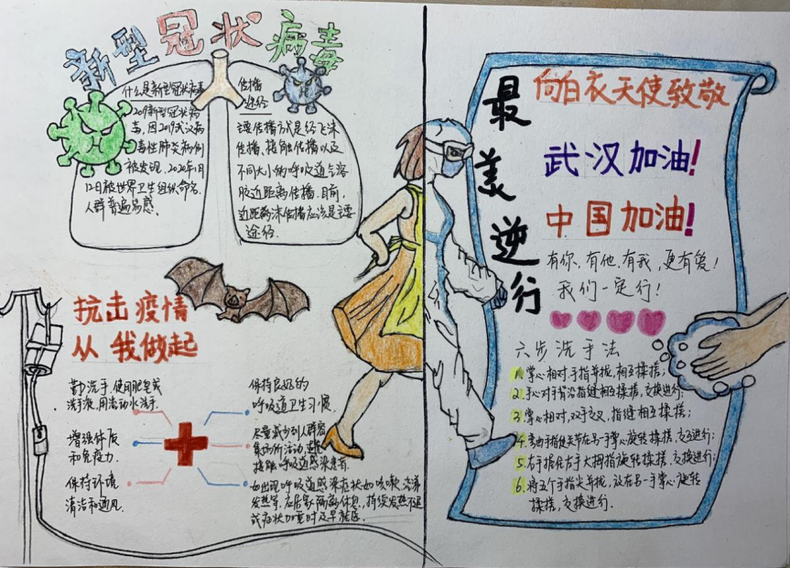 新型冠状病毒
什么是新型冠状病毒
2019新型冠状病
毒，因2019武汉病
毒性肺炎病例
被发现，2020年1月
12日被世界卫生组织命名.
人群普遍易感.
传播
途经
主要传播方式是经飞沫
传播、接触传播以及
不同大小的呼吸道气溶
胶近距离传播.目前，
近距离飞沫传播应该是主要
途经.
抗击疫情
从我做起
勤洗手.使用肥皂或
洗手液.用流动水洗手.
增强体质
和免疫力.
保持环境
清洁和通风.
保持良好的
呼吸道卫生习惯.
尽量减少到人群密
集场所活动，避免
接触呼吸道感染患者.
如出现呼吸道感染症状如咳嗽、流涕
发热等，应居家隔离休息，持续发热不退
或症状加重时及早就医.
最美逆行
向白衣天使致敬
武汉加油!
中国加油!
有你、有他、有我，更有爱！
我们一定行！
六步洗手法
1.掌心相对，手指并拢，相互揉搓；
2.手心对手背沿指缝相互揉搓，交换进行；
3.掌心相对，双手交叉，指缝相互揉搓；
4.弯曲手指使关节在另一手掌心旋转揉搓，交互进行；
5.右手握住左手大拇指旋转揉搓，交换进行；
6.将五个手指尖并拢，放在另一手掌心旋转
揉搓，交换进行.